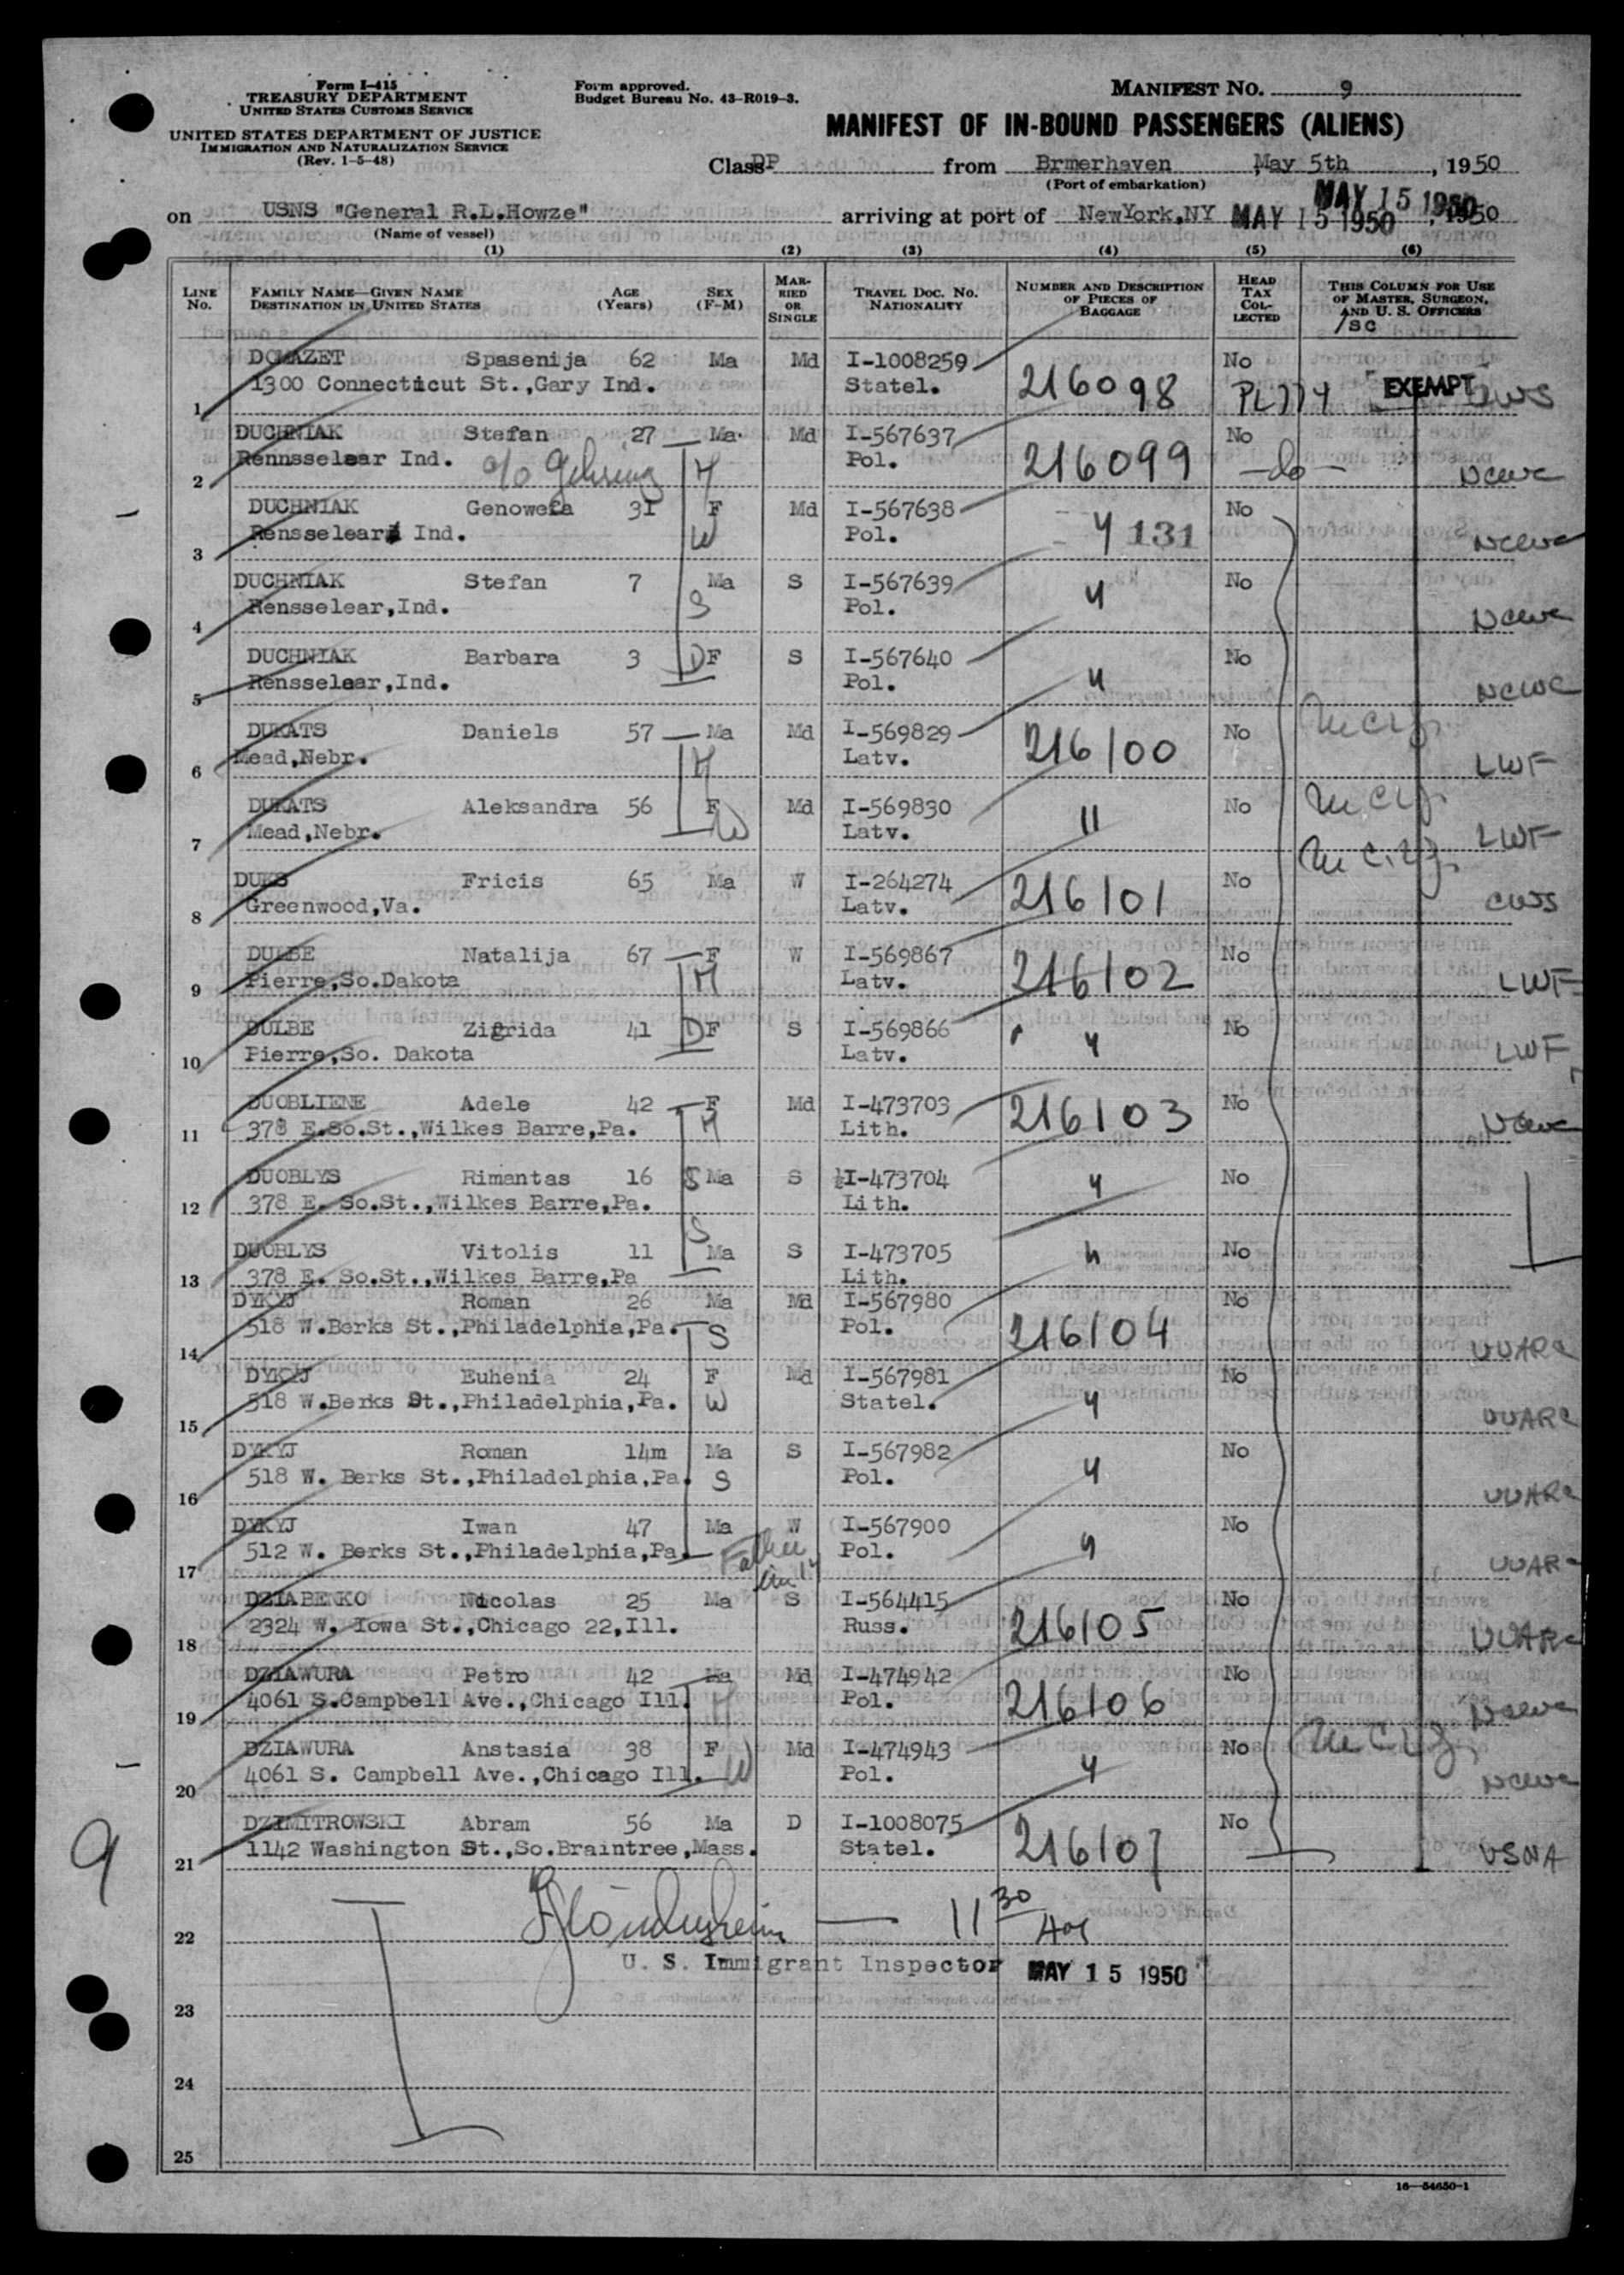 Form I-415
TREASURY DEPARTMENT
UNITED STATES CUSTOMS SERVICE
UNITED STATES DEPARTMENT OF JUSTICE
IMMIGRATION AND NATURALIZATION SERVICE
(Rev. 1-5-48)
Form approved.
Budget Bureau No. 43-R019-3.
MANIFEST NO. 9
MANIFEST OF IN-BOUND PASSENGERS (ALIENS)
Class DP from Brmerhaven, May 5th, 1950
(Port of embarkation)
on USNS "General R.L.Howze" arriving at port of NewYork,NY MAY 15 1950 MAY 15 1950, 1950
(Name of vessel)
(1) (2) (3) (4) (5) (6)
LINE No. FAMILY NAME—GIVEN NAME DESTINATION IN UNITED STATES AGE (Years) SEX (F-M) MARRIED OR SINGLE TRAVEL DOC. NO. NATIONALITY NUMBER AND DESCRIPTION OF PIECES OF BAGGAGE HEAD TAX COLLECTED THIS COLUMN FOR USE OF MASTER, SURGEON, AND U. S. OFFICERS
/sc
DOMAZET Spasenija 62 Ma Md I-1008259 No
1 1300 Connecticut St.,Gary Ind. Statel. 216098 PL774 EXEMPT
DUCHNIAK Stefan 27 Ma. Md I-567637 No
2 Rennsselear Ind. c/o Gehring H Pol. 216099 -do- NCWC
DUCHNIAK Genowefa 31 F Md I-567638 No
3 Rensselear Ind. W Pol. " 131 NCWC
DUCHNIAK Stefan 7 Ma S I-567639 No
4 Rensselear,Ind. S Pol. " NCWC
DUCHNIAK Barbara 3 D F S I-567640 No
5 Rensselear,Ind. Pol. " NCWC
DUKATS Daniels 57 Ma Md I-569829 No
6 Mead,Nebr. H Latv. 216100 LWF
DUKATS Aleksandra 56 F Md I-569830 No
7 Mead,Nebr. W Latv. " LWF
DUKS Fricis 65 Ma W I-264274 No
8 Greenwood,Va. Latv. 216101 CWS
DULBE Natalija 67 F W I-569867 No
9 Pierre,So.Dakota H Latv. 216102 LWF
DULBE Zigrida 41 D F S I-569866 No
10 Pierre,So. Dakota Latv. " LWF
DUOBLIENE Adele 42 F Md I-473703 No
11 378 E.So.St.,Wilkes Barre,Pa. H Lith. 216103 NCWC
DUOBLYS Rimantas 16 S Ma S I-473704 No
12 378 E. So.St.,Wilkes Barre,Pa. Lith. "
DUOBLYS Vitolis 11 S Ma S I-473705 No
13 378 E. So.St.,Wilkes Barre,Pa Lith. "
DYKYJ Roman 26 Ma Md I-567980 No
14 518 W.Berks St.,Philadelphia,Pa. S Pol. 216104 UUARC
DYKYJ Euhenia 24 F Md I-567981 No
15 518 W.Berks St.,Philadelphia,Pa. W Statel. " UUARC
DYKYJ Roman 14m Ma S I-567982 No
16 518 W. Berks St.,Philadelphia,Pa. S Pol. " UUARC
DYKYJ Iwan 47 Ma W I-567900 No
17 512 W. Berks St.,Philadelphia,Pa. Father Pol. " UUARC
DZIABENKO Nicolas 25 Ma S I-564415 No
18 2324 W. Iowa St.,Chicago 22,Ill. Russ. 216105 UUARC
DZIAWURA Petro 42 Ma Md I-474942 No
19 4061 S.Campbell Ave.,Chicago Ill. H Pol. 216106 NCWC
DZIAWURA Anstasia 38 F Md I-474943 No
20 4061 S. Campbell Ave.,Chicago Ill. W Pol. " NCWC
DZIMITROWSKI Abram 56 Ma D I-1008075 No
21 1142 Washington St.,So.Braintree,Mass. Statel. 216107 USNA
9
22 11 30
U. S. Immigrant Inspector MAY 15 1950
23
24
25
16—54650-1